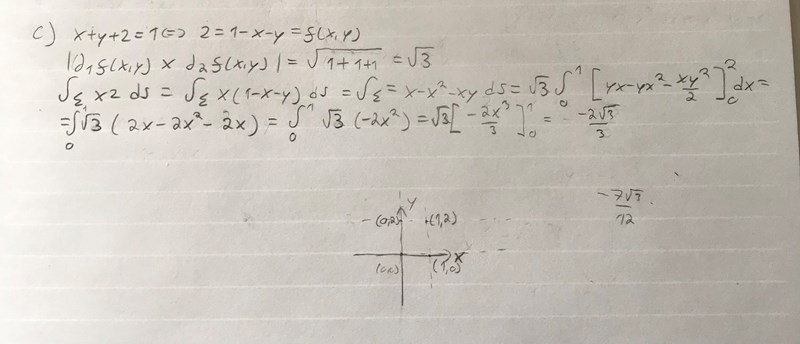 c) x+y+z=1 <=> z=1-x-y=f(x,y)
|∂₁f(x,y) × ∂₂f(x,y)| = √(1+1+1) = √3
∫_Σ xz ds = ∫_Σ x(1-x-y) ds = ∫_Σ = x-x²-xy ds = √3 ∫₀¹ [yx-yx²-xy²/2]₀² dx =
= ∫₀¹ √3 (2x-2x²-2x) = ∫₀¹ √3 (-2x²) = √3 [-2x³/3]₀¹ = -2√3/3
-7√3/12
y
(0,2) (1,2)
x
(0,0) (1,0)